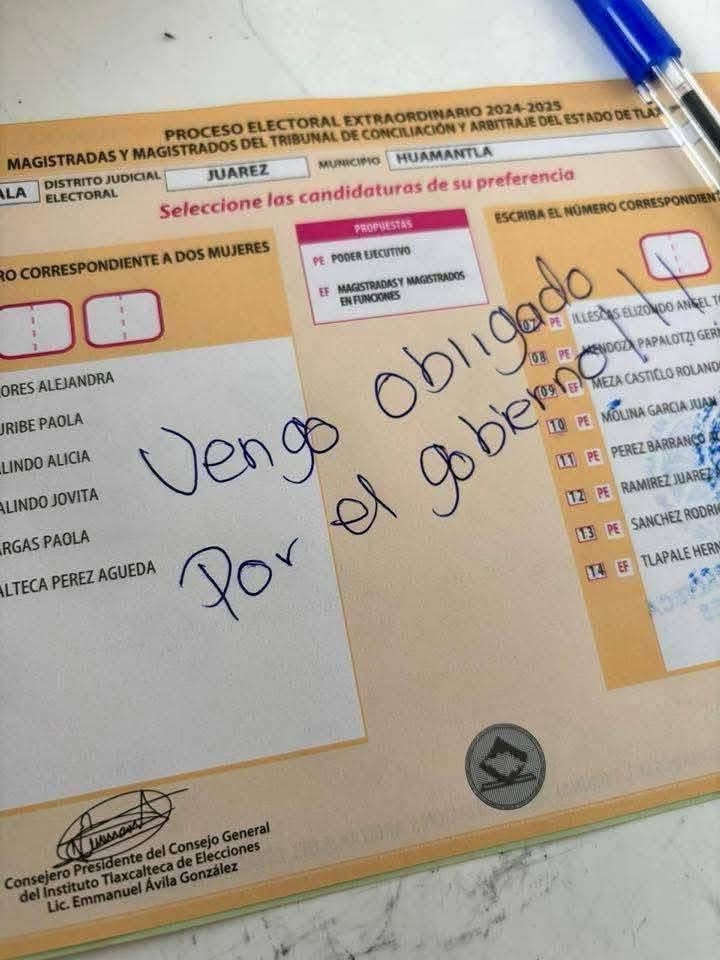 PROCESO ELECTORAL EXTRAORDINARIO 2024-2025
MAGISTRADAS Y MAGISTRADOS DEL TRIBUNAL DE CONCILIACIÓN Y ARBITRAJE DEL ESTADO DE TLAX
ALA DISTRITO JUDICIAL ELECTORAL JUAREZ MUNICIPIO HUAMANTLA
Seleccione las candidaturas de su preferencia
RO CORRESPONDIENTE A DOS MUJERES
ORES ALEJANDRA
URIBE PAOLA
ALINDO ALICIA
ALINDO JOVITA
ARGAS PAOLA
ALTECA PEREZ AGUEDA
PROPUESTAS
PE PODER EJECUTIVO
EF MAGISTRADAS Y MAGISTRADOS
EN FUNCIONES
ESCRIBA EL NÚMERO CORRESPONDIENT
07 PE ILLESCAS ELIZONDO ANGEL T
08 PE MENDOZA PAPALOTZI GER
09 EF MEZA CASTILLO ROLAND
10 PE MOLINA GARCIA JUAN
11 PE PEREZ BARRANCO
12 PE RAMIREZ JUAREZ
13 PE SANCHEZ RODRI
14 EF TLAPALE HER
Vengo obligado
Por el gobierno!!!
Consejero Presidente del Consejo General
del Instituto Tlaxcalteca de Elecciones
Lic. Emmanuel Ávila González